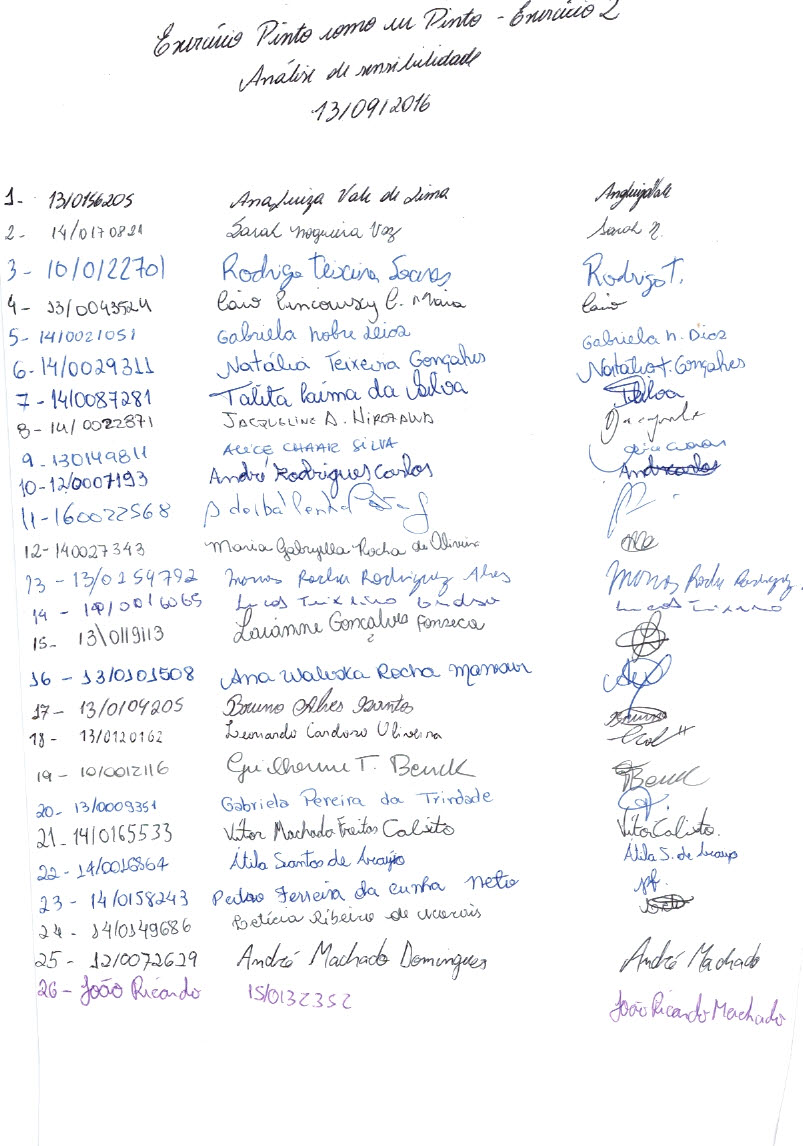 Exercício Pinto como eu Pinto - Exercício 2
Análise de sensibilidade
13/09/2016
1- 13/0156205 Ana Luiza Vale de Lima AnaLuizaVale
2 - 14/0170821 Sarah Nogueira Vaz Sarah N.
3 - 10/0122701 Rodrigo Teixeira Soares Rodrigo T.
4 - 13/0043524 Caio C. Maia Caio
5 - 14/0021051 Gabriela Nobre Dias Gabriela N. Dias
6 - 14/0029311 Natália Teixeira Gonçalves Natália T. Gonçalves
7 - 14/0087281 Talita Laima da Silva
8 - 14/0022871 JACQUELINE A. HIROTAWA
9 - 130149811 ALICE CHAAR SILVA
10 - 12/0007193 André Rodrigues Carlos
11 - 160022568
12 - 140027343 Maria Gabryella Rocha de Oliveira
13 - 13/0154792 Rocha Rodriguez Alves Rocha Rodriguez
14 - 14/0016065 Lucas Teixeira Lucas Teixeira
15 - 13\0119113 Laianne Gonçalves Fonseca
16 - 13/0101508 Ana Waleska Rocha Mansour
17 - 13/0104205 Bruno Alves Santos Bruno
18 - 13/0120162 Leonardo Cardoso Oliveira
19 - 10/0012116 Guilherme T. Benck Benck
20 - 13/0009351 Gabriela Pereira da Trindade
21 - 14/0165533 Vitor Machado Freitas Calisto Vitor Calisto.
22 - 14/0016864 Átila Santos de Araujo Átila S. de Araujo
23 - 14/0158243 Pedro Ferreira da Cunha Neto pf.
24 - 14/0149686 Letícia Ribeiro de Morais
25 - 12/0072629 André Machado Domingues André Machado
26 - João Ricardo 15/0132352 João Ricardo Machado